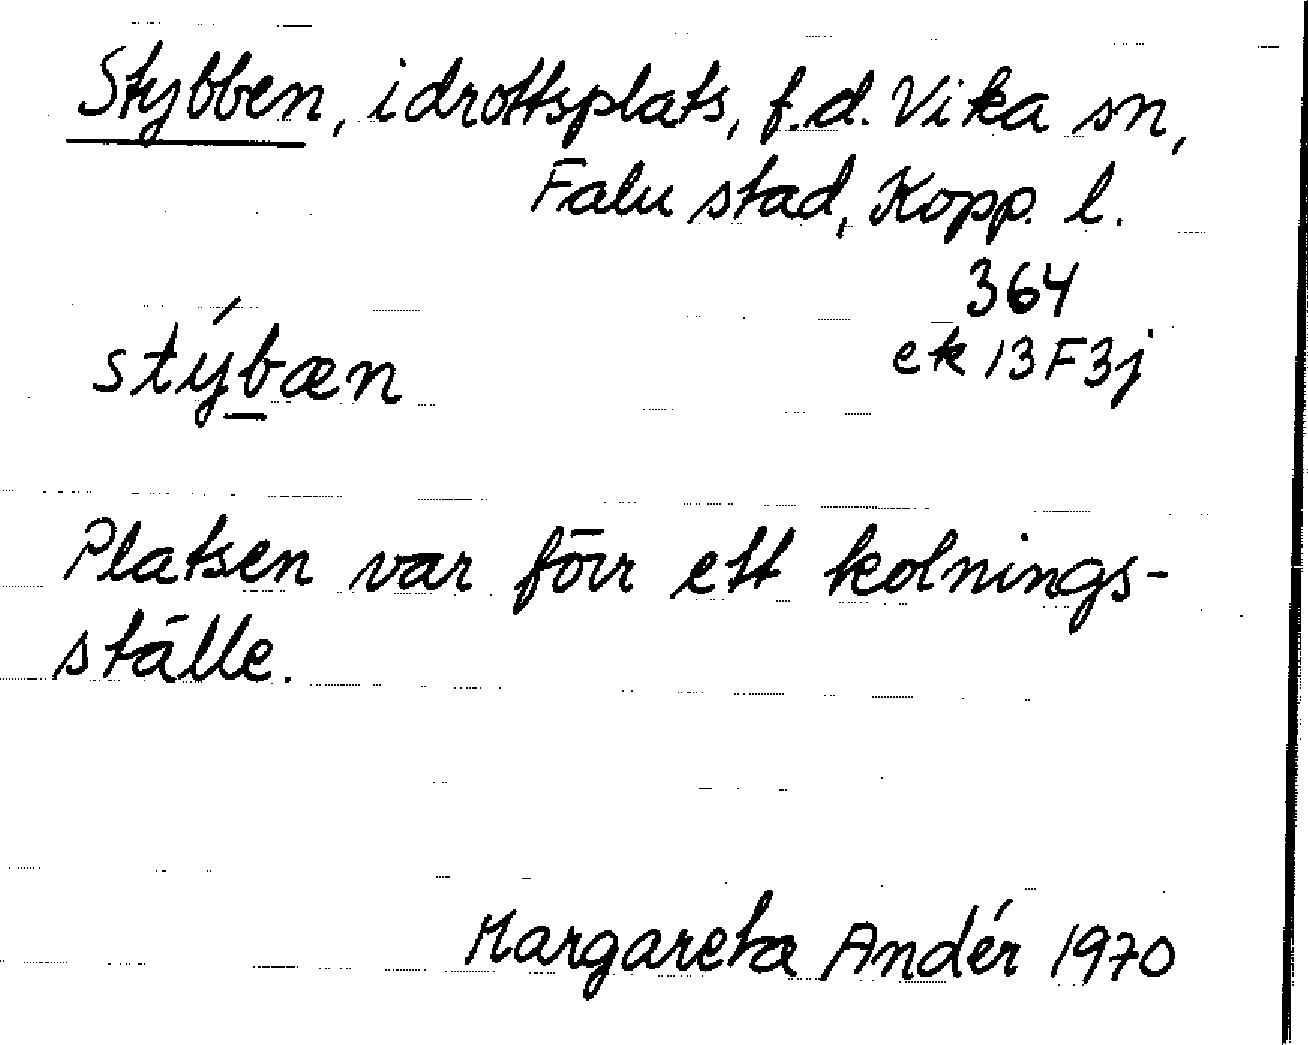 Stybben, idrottsplats, f.d. Vika sn,
Falu stad, Kopp. l.
364
ek 13F3j
stýb̲æn
Platsen var förr ett kolnings-
ställe.
Margareta Andér 1970